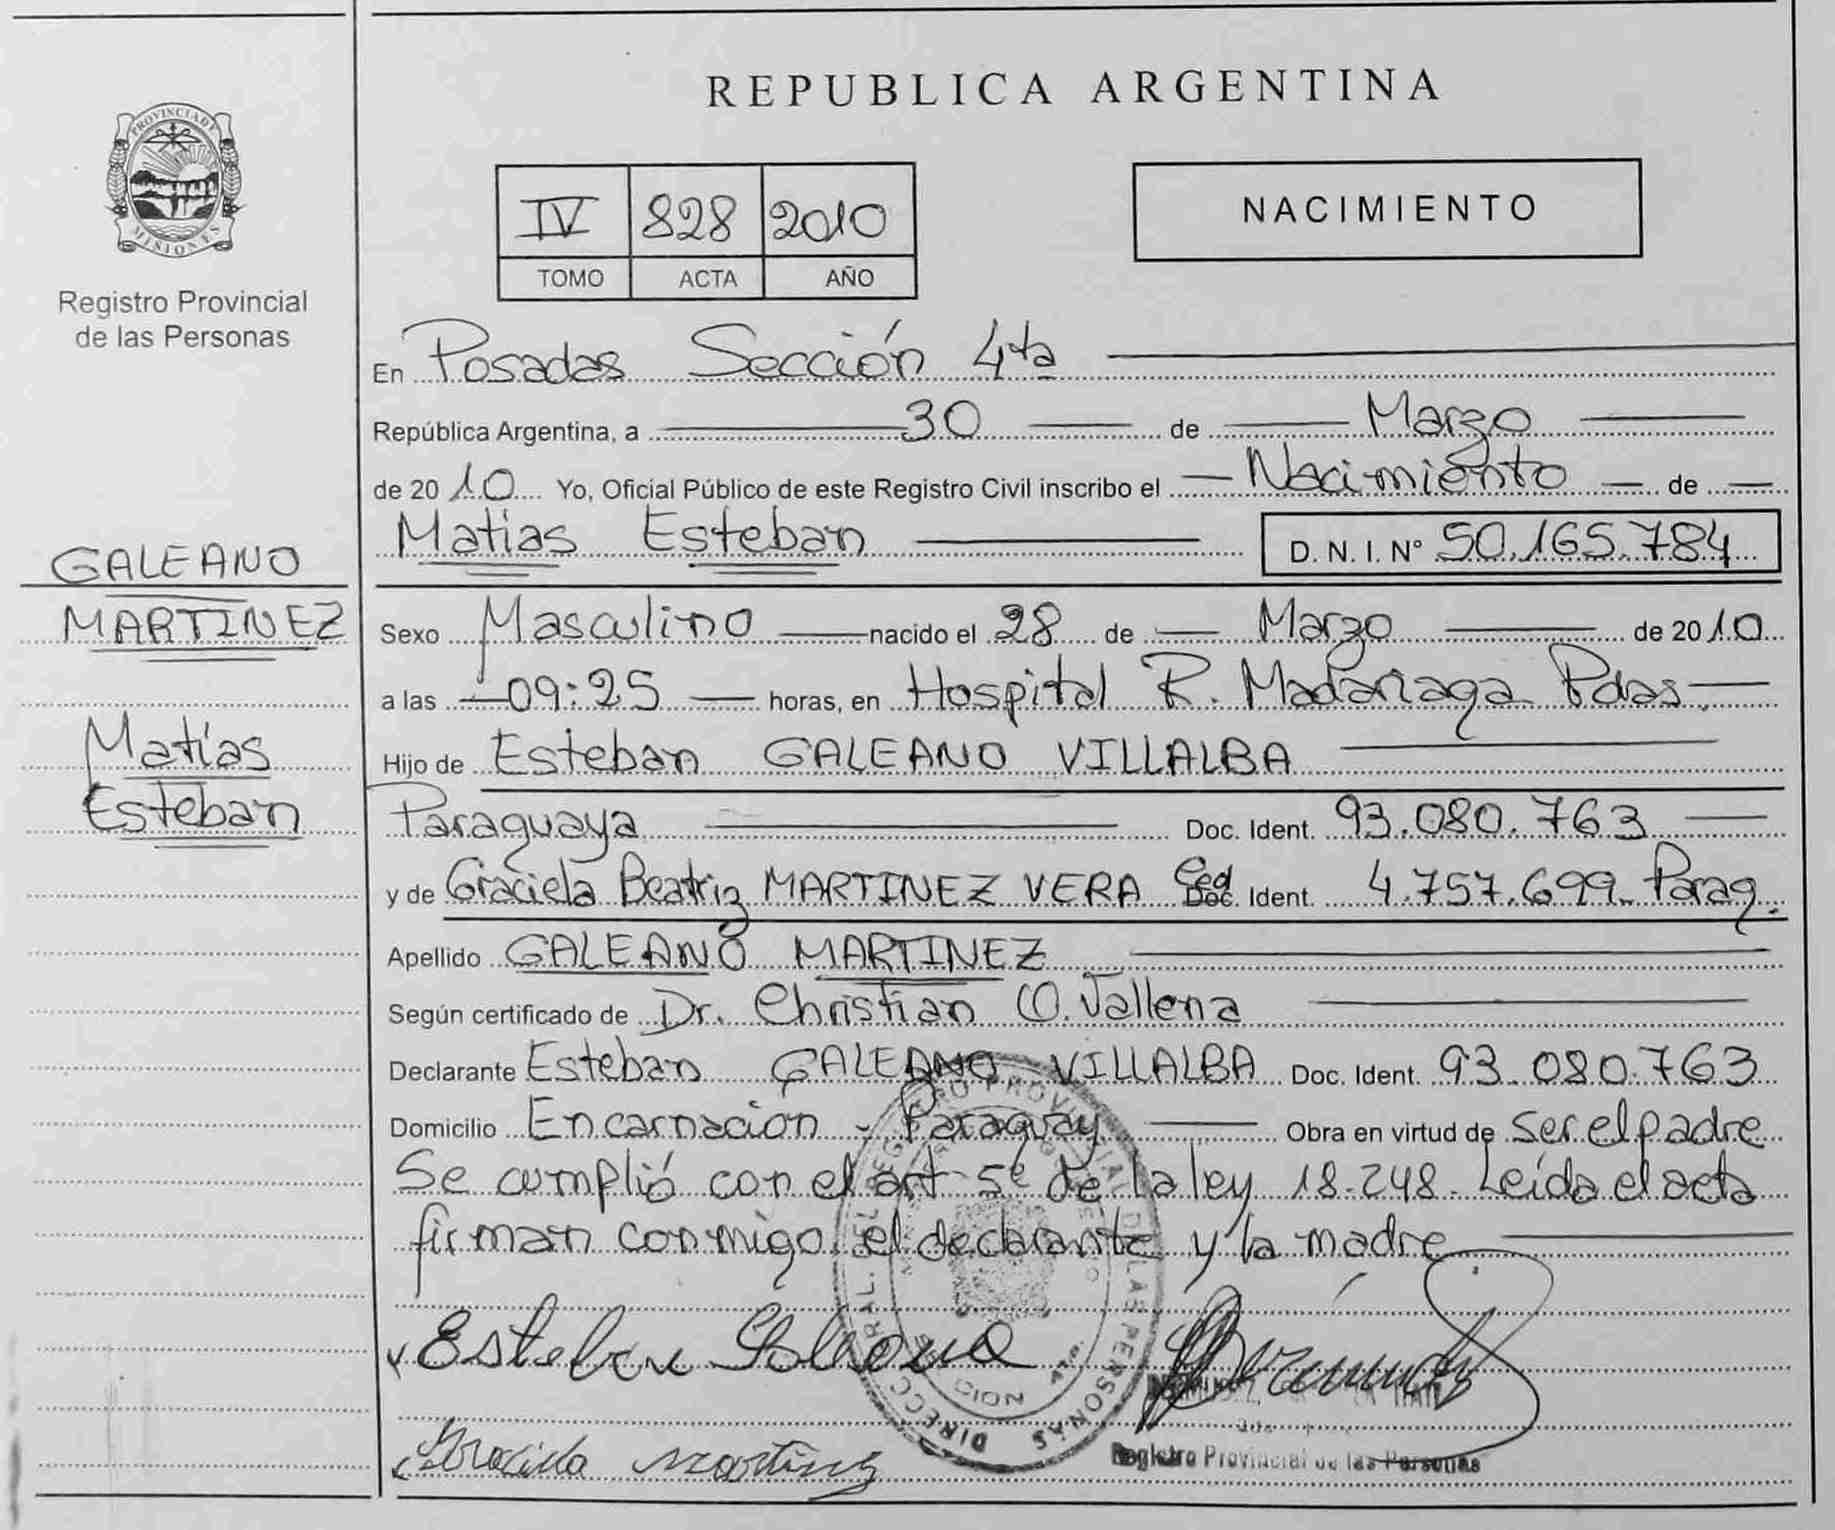 REPUBLICA ARGENTINA
PROVINCIA DE
MISIONES
Registro Provincial
de las Personas
IV 828 2010
TOMO ACTA AÑO
NACIMIENTO
En Posadas Sección 4ta
República Argentina, a 30 de Marzo
de 2010 Yo, Oficial Público de este Registro Civil inscribo el Nacimiento de
Matias Esteban D. N. I. N° 50.165.784
GALEANO
MARTINEZ
Matías
Esteban
Sexo Masculino nacido el 28 de Marzo de 2010
a las 09:25 horas, en Hospital R. Madariaga Pdas.
Hijo de Esteban GALEANO VILLALBA
Paraguaya Doc. Ident. 93.080.763
y de Graciela Beatriz MARTINEZ VERA Ced Doc. Ident. 4.757.699 Parag.
Apellido GALEANO MARTINEZ
Según certificado de Dr. Christian O. Vallena
Declarante Esteban GALEANO VILLALBA Doc. Ident. 93.080.763
Domicilio Encarnacion - Paraguay Obra en virtud de ser el padre
Se cumplió con el art 5º de la ley 18.248. Leída el acta
firman conmigo el declarante y la madre
Esteban Galeano
Graciela Martinez
Registro Provincial de las Personas